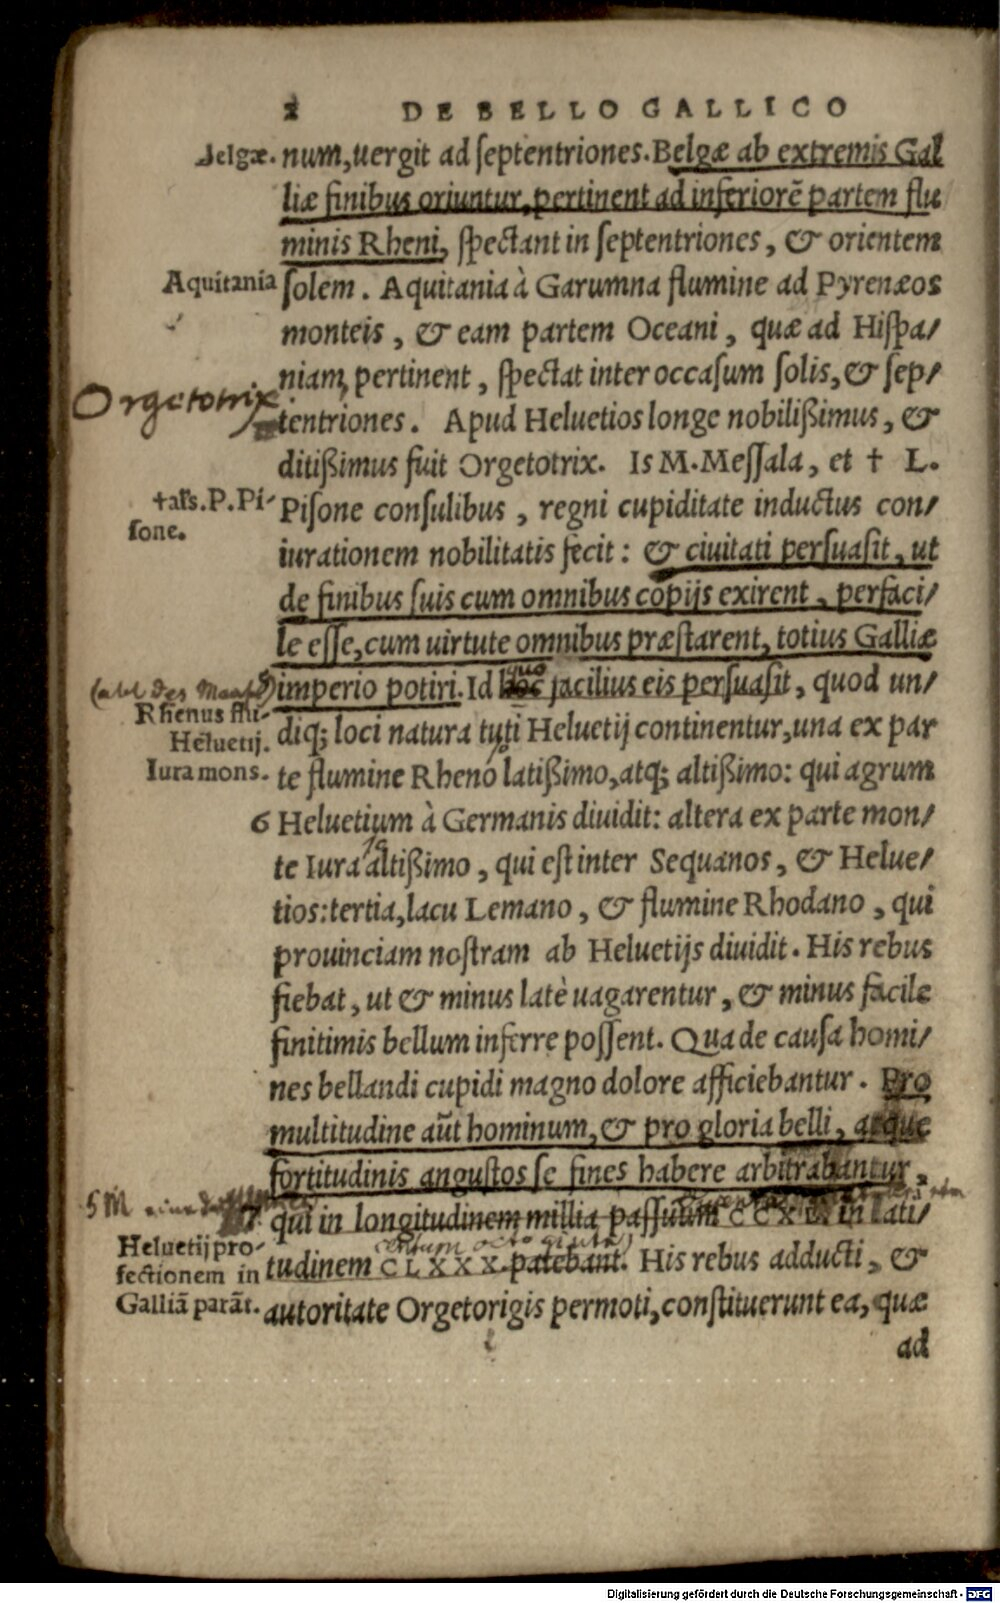 2 DE BELLO GALLICO
num,uergit ad ſeptentriones.Belgæ ab extremis Gal
liæ finibus oriuntur,pertinent ad inferiorẽ partem flu
minis Rheni, ſpectant in ſeptentriones, & orientem
Aquitania
ſolem. Aquitania à Garumna flumine ad Pyrenæos
monteis, & eam partem Oceani, quæ ad Hiſpa/
niam, pertinent, ſpectat inter occaſum ſolis, & ſep/
Orgetotrix
tentriones. Apud Heluetios longe nobilißimus, &
ditißimus fuit Orgetotrix. Is M.Meſſala, et † L.
†als.P.Pi-
ſone.
Piſone conſulibus, regni cupiditate inductus con/
iurationem nobilitatis fecit: & ciuitati perſuaſit, ut
de finibus ſuis cum omnibus copijs exirent, perfaci/
le eſſe, cum uirtute omnibus præſtarent, totius Galliæ
imperio potiri. Id hoc facilius eis perſuaſit, quod un/
quo
Rhenus flu-
Heluetij.
diq; loci natura tuti Heluetij continentur,una ex par
Iura mons.
te flumine Rheno latißimo,atq; altißimo: qui agrum
6 Heluetium à Germanis diuidit: altera ex parte mon/
te Iura altißimo, qui eſt inter Sequanos, & Helue/
tios:tertia,lacu Lemano, & flumine Rhodano, qui
prouinciam noſtram ab Heluetijs diuidit. His rebus
fiebat, ut & minus latè uagarentur, & minus facile
finitimis bellum inferre poſſent. Qua de cauſa homi/
nes bellandi cupidi magno dolore afficiebantur. Pro
multitudine aũt hominum, & pro gloria belli, atque
fortitudinis anguſtos ſe fines habere arbitrabantur,
qui in longitudinem millia paſſuum CCXL in lati/
centum octoginta
Heluetij pro-
fectionem in
Galliã parãt.
tudinem CLXXX.patebant. His rebus adducti, &
autoritate Orgetorigis permoti,conſtituerunt ea, quæ
ad
Digitalisierung gefördert durch die Deutsche Forschungsgemeinschaft - DFG